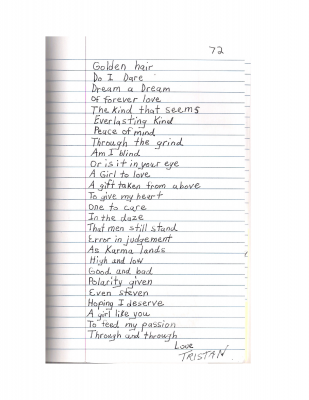 72
Golden hair
Do I Dare
Dream a Dream
Of forever love
The Kind that seems
Everlasting Kind
Peace of mind
Through the grind
Am I blind
Or is it in your eye
A Girl to love
A gift taken from above
To give my heart
One to care
In the daze
That men still stand
Error in judgement
As Karma lands
High and low
Good and bad
Polarity given
Even steven
Hoping I deserve
A girl like you
To feed my passion
Through and through
Love
TRISTAN.